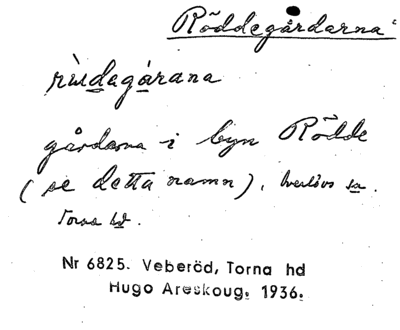 Röddegårdarna
gårdarna i byn Rödde
(se detta namn), Everlövs sn.
Torna hd.
Nr 6825. Veberöd, Torna hd
Hugo Areskoug. 1936.